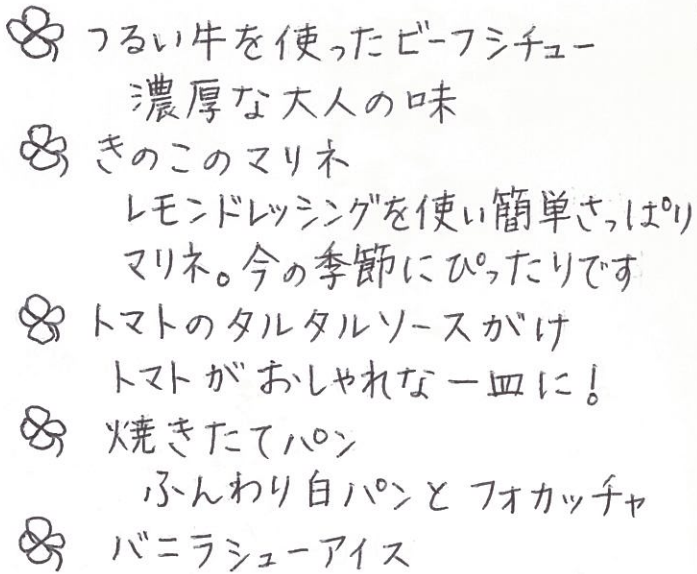 つるい牛を使ったビーフシチュー
濃厚な大人の味
きのこのマリネ
レモンドレッシングを使い簡単さっぱり
マリネ。今の季節にぴったりです
トマトのタルタルソースがけ
トマトがおしゃれな一皿に!
焼きたてパン
ふんわり白パンとフォカッチャ
バニラシューアイス